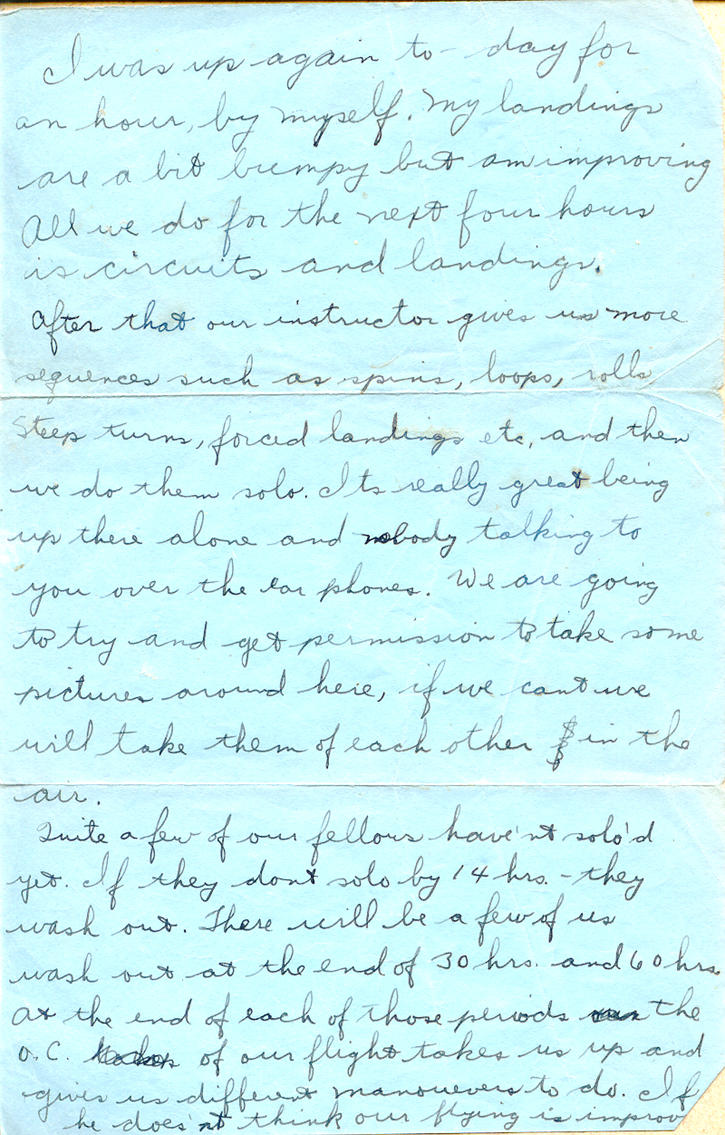 I was up again to-day for
an hour, by myself. My landings
are a bit bumpy but am improving
All we do for the next four hours
is circuits and landings.
After that our instructor gives us more
sequences such as spins, loops, rolls
Steep turns, forced landings etc, and then
we do them solo. Its really great being
up there alone and nobody talking to
you over the ear phones. We are going
to try and get permission to take some
pictures around here, if we cant we
will take them of each other in the
air.
Quite a few of our fellows have'nt solo'd
yet. If they dont solo by 14 hrs. - they
wash out. There will be a few of us
wash out at the end of 30 hrs. and 60 hrs.
At the end of each of those periods the
O.C. of our flight takes us up and
gives us different manouevers to do. If
he does'nt think our flying is improv